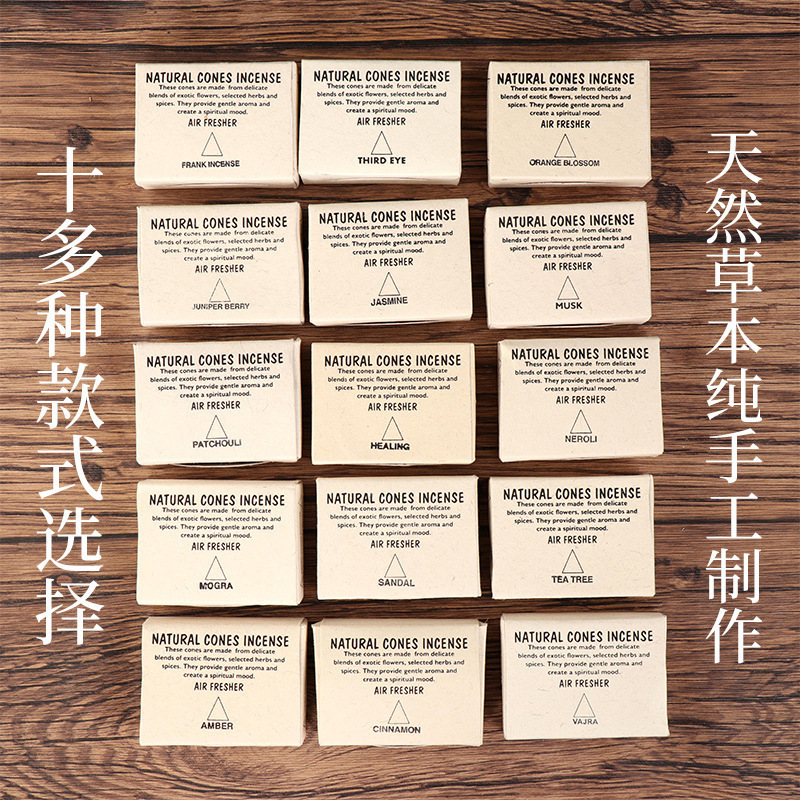 十多种款式选择
NATURAL CONES INCENSE
These cones are made from delicate
blends of exotic flowers, selected herbs and
spices. They provide gentle aroma and
create a spiritual mood.
AIR FRESHER
FRANK INCENSE
NATURAL CONES INCENSE
These cones are made from delicate
blends of exotic flowers, selected herbs and
spices. They provide gentle aroma and
create a spiritual mood.
AIR FRESHER
THIRD EYE
NATURAL CONES INCENSE
These cones are made from delicate
blends of exotic flowers, selected herbs and
spices. They provide gentle aroma and
create a spiritual mood.
AIR FRESHER
ORANGE BLOSSOM
NATURAL CONES INCENSE
These cones are made from delicate
blends of exotic flowers, selected herbs and
spices. They provide gentle aroma and
create a spiritual mood.
AIR FRESHER
JUNIPER BERRY
NATURAL CONES INCENSE
These cones are made from delicate
blends of exotic flowers, selected herbs and
spices. They provide gentle aroma and
create a spiritual mood.
AIR FRESHER
JASMINE
NATURAL CONES INCENSE
These cones are made from delicate
blends of exotic flowers, selected herbs and
spices. They provide gentle aroma and
create a spiritual mood.
AIR FRESHER
MUSK
NATURAL CONES INCENSE
These cones are made from delicate
blends of exotic flowers, selected herbs and
spices. They provide gentle aroma and
create a spiritual mood.
AIR FRESHER
PATCHOULI
NATURAL CONES INCENSE
These cones are made from delicate
blends of exotic flowers, selected herbs and
spices. They provide gentle aroma and
create a spiritual mood.
AIR FRESHER
HEALING
NATURAL CONES INCENSE
These cones are made from delicate
blends of exotic flowers, selected herbs and
spices. They provide gentle aroma and
create a spiritual mood.
AIR FRESHER
NEROLI
NATURAL CONES INCENSE
These cones are made from delicate
blends of exotic flowers, selected herbs and
spices. They provide gentle aroma and
create a spiritual mood.
AIR FRESHER
MOGRA
NATURAL CONES INCENSE
These cones are made from delicate
blends of exotic flowers, selected herbs and
spices. They provide gentle aroma and
create a spiritual mood.
AIR FRESHER
SANDAL
NATURAL CONES INCENSE
These cones are made from delicate
blends of exotic flowers, selected herbs and
spices. They provide gentle aroma and
create a spiritual mood.
AIR FRESHER
TEA TREE
NATURAL CONES INCENSE
These cones are made from delicate
blends of exotic flowers, selected herbs and
spices. They provide gentle aroma and
create a spiritual mood.
AIR FRESHER
AMBER
NATURAL CONES INCENSE
These cones are made from delicate
blends of exotic flowers, selected herbs and
spices. They provide gentle aroma and
create a spiritual mood.
AIR FRESHER
CINNAMON
NATURAL CONES INCENSE
These cones are made from delicate
blends of exotic flowers, selected herbs and
spices. They provide gentle aroma and
create a spiritual mood.
AIR FRESHER
VAJRA
天然草本纯手工制作